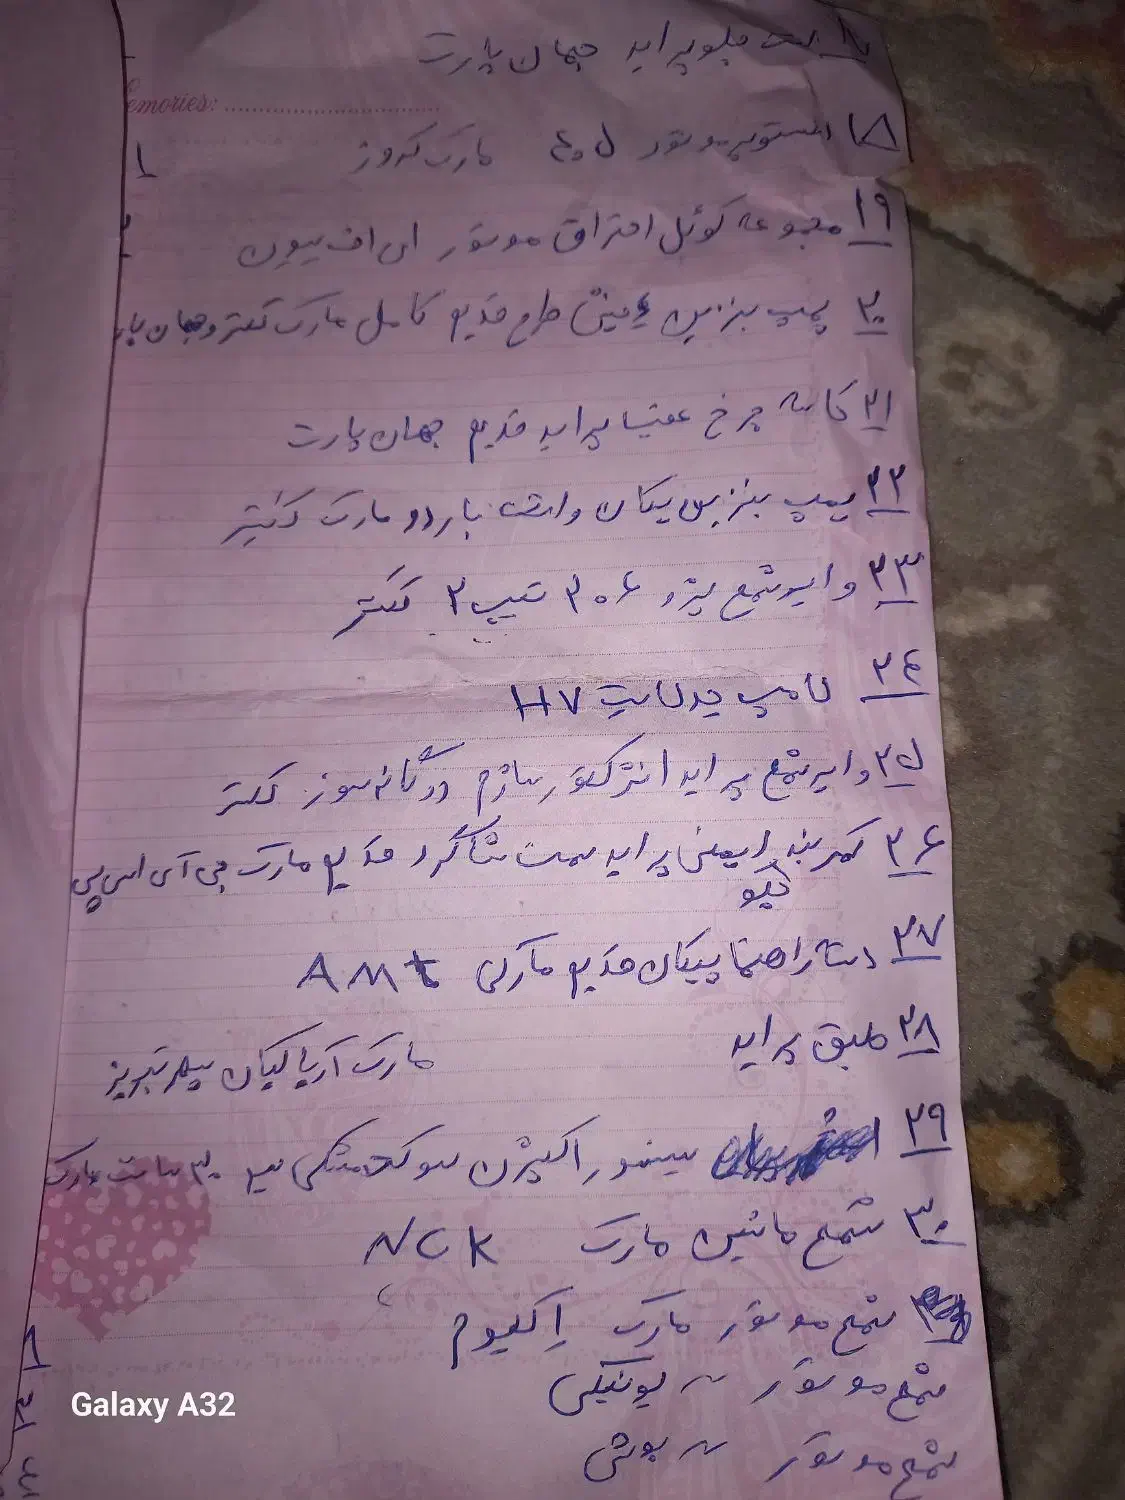 جلو پراید جهان پارت
emories:
۱۸ استوپر موتور ۴۰۵ مارک کروز
۱۹ مجموعه کوئل احتراق موتور ای اف سون
۲۰ پمپ بنزین طرح قدیم کامل مارک گنتر و جهان پار
۲۱ کاسه چرخ عقب پراید قدیم جهان پارت
۲۲ پمپ بنزین پیکان وانت باردو مارک گنتر
۲۳ وایر شمع پژو ۲۰۶ تیپ ۲ گنتر
۲۴ لامپ چدلایت H7
۲۵ وایر شمع پراید انژکتور سازم دوگانه سوز گنتر
۲۶ کمربند ایمنی پراید سمت شاگرد قدیم مارک جی آی اس پی
جلو
۲۷ دسته راهنما پیکان قدیم مارک AMt
۲۸ طبق پراید مارک آریا کیان سهر تبریز
۲۹ سنسور اکسیژن سوکت مشکی سیم ۳۰ سانت مارک
۳۰ شمع ماشین مارک NCK
شمع موتور مارک اکتیوم
شمع موتور 〃 یونیکی
شمع موتور 〃 بوش
Galaxy A32